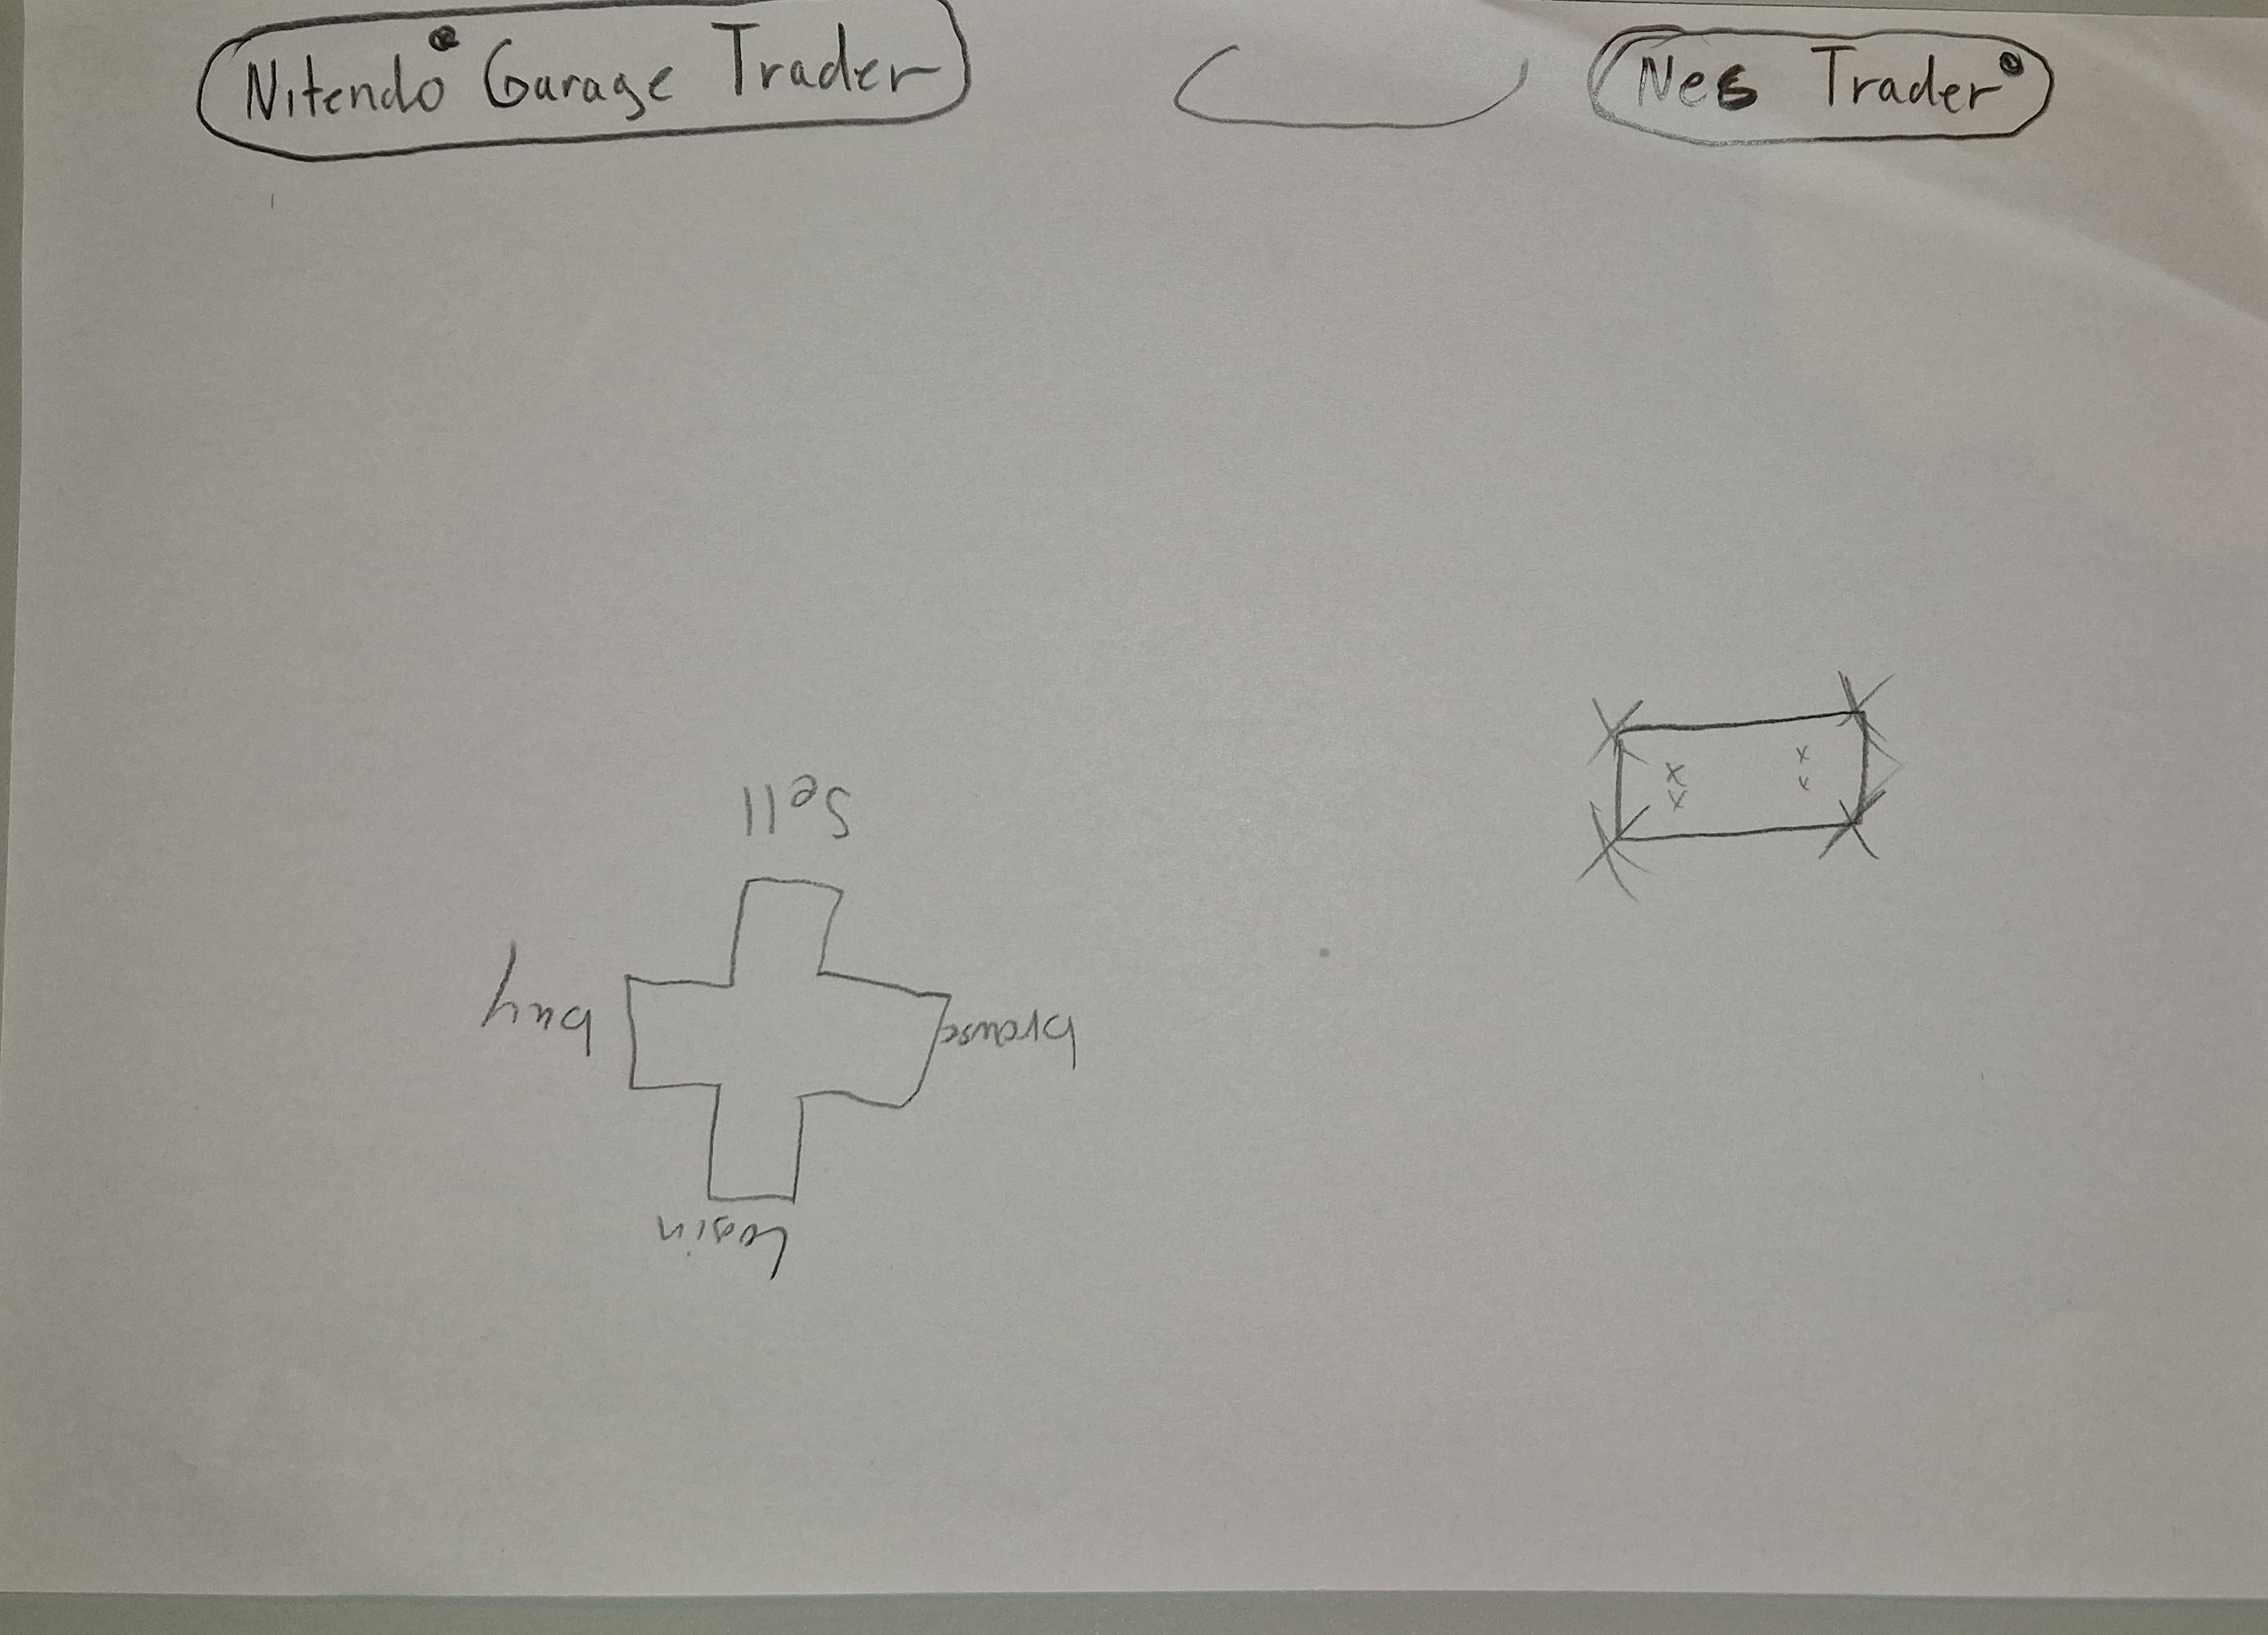 Nitendo® Garage Trader
Nes Trader®
Sell
buy
browse
Login